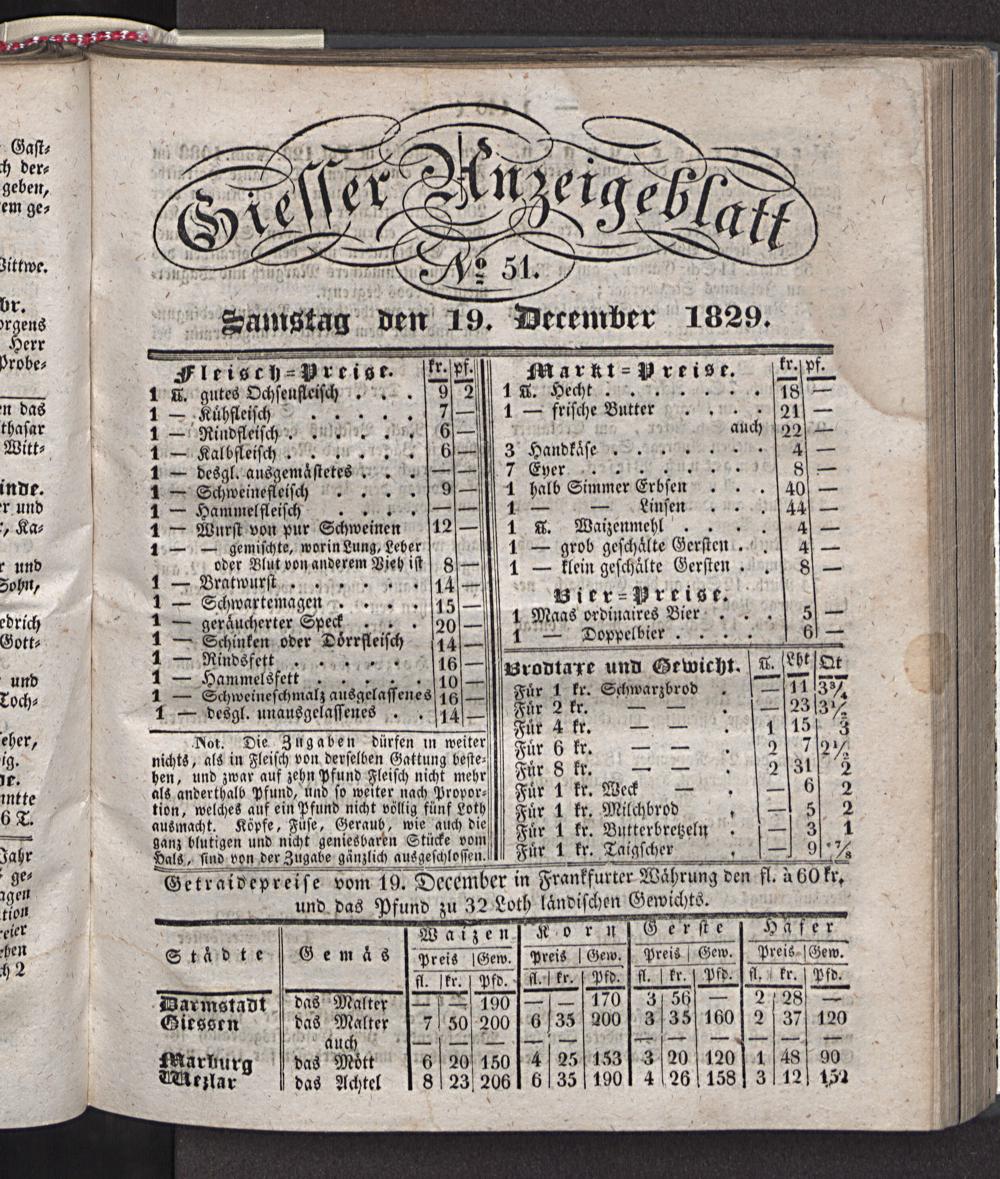 Gast=
ch der=
geben,
em ge=
Wittwe.
br.
orgens
Herr
Probe=
en das
thasar
Witt=
inde.
er und
r, Ka=
r und
Sohn,
edrich
Gott=
und
Toch=
eher,
ig.
de.
nntte
6 T.
Jahr
ge=
agen
tion
reier
eben
ch 2
Giesser Anzeigeblatt
No 51.
Samstag den 19. December 1829.
Fleisch=Preise. kr. pf.
1 ℔. gutes Ochsenfleisch . . . 9 2
1 — Kühfleisch . . . . . 7 —
1 — Rindfleisch . . . . . . 6 —
1 — Kalbfleisch . . . . . . 6 —
1 — desgl. ausgemästetes . . . — —
1 — Schweinefleisch . . . . 9 —
1 — Hammelfleisch . . . . . — —
1 — Wurst von pur Schweinen 12 —
1 — — gemischte, worin Lung, Leber
oder Blut von anderem Vieh ist 8 —
1 — Bratwurst . . . . . . 14 —
1 — Schwartemagen . . . . 15 —
1 — geräucherter Speck . . . 20 —
1 — Schinken oder Dörrfleisch 14 —
1 — Rindsfett . . . . . . 16 —
1 — Hammelsfett . . . . . 10 —
1 — Schweineschmalz ausgelassenes 16 —
1 — desgl. unausgelassenes . . 14 —
Not. Die Zugaben dürfen in weiter
nichts, als in Fleisch von derselben Gattung beste=
hen, und zwar auf zehn Pfund Fleisch nicht mehr
als anderthalb Pfund, und so weiter nach Propor=
tion, welches auf ein Pfund nicht völlig fünf Loth
ausmacht. Köpfe, Füse, Geraub, wie auch die
ganz blutigen und nicht geniesbaren Stücke vom
Hals, sind von der Zugabe gänzlich ausgeschlossen.
Markt=Preise. kr. pf.
1 ℔. Hecht . . . . . . . 18 —
1 — frische Butter . . . . 21 —
auch 22 —
3 Handkäse . . . . . . . 4 —
7 Eyer . . . . . . . . 8 —
1 halb Simmer Erbsen . . . 40 —
1 — — Linsen . . . 44 —
1 ℔. Waizenmehl . . . . 4 —
1 — grob geschälte Gersten . . 4 —
1 — klein geschälte Gersten . . 8 —
Bier=Preise.
1 Maas ordinaires Bier . . . 5 —
1 — Doppelbier . . . . 6 —
Brodtaxe und Gewicht. ℔. Lht Qt
Für 1 kr. Schwarzbrod . — 11 3¾
Für 2 kr. — — . — 23 3½
Für 4 kr. — — . 1 15 3
Für 6 kr. — — . 2 7 2½
Für 8 kr. — — . 2 31 2
Für 1 kr. Weck — . — 6 2
Für 1 kr. Milchbrod . — 5 2
Für 1 kr. Butterbretzeln . — 3 1
Für 1 kr. Taigscher . — 9 ⅞
Getraidepreise vom 19. December in Frankfurter Währung den fl. à 60 kr.
und das Pfund zu 32 Loth ländischen Gewichts.
Städte Gemäs Waizen Korn Gerste Hafer
Preis Gew. Preis Gew. Preis Gew. Preis Gew.
fl. kr. Pfd. fl. kr. Pfd. fl. kr. Pfd. fl. kr. Pfd.
Darmstadt das Malter — — 190 — — 170 3 56 — 2 28 —
Giessen das Malter 7 50 200 6 35 200 3 35 160 2 37 120
auch — — — — — — — — — — — —
Marburg das Mött 6 20 150 4 25 153 3 20 120 1 48 90
Wezlar das Achtel 8 23 206 6 35 190 4 26 158 3 12 152